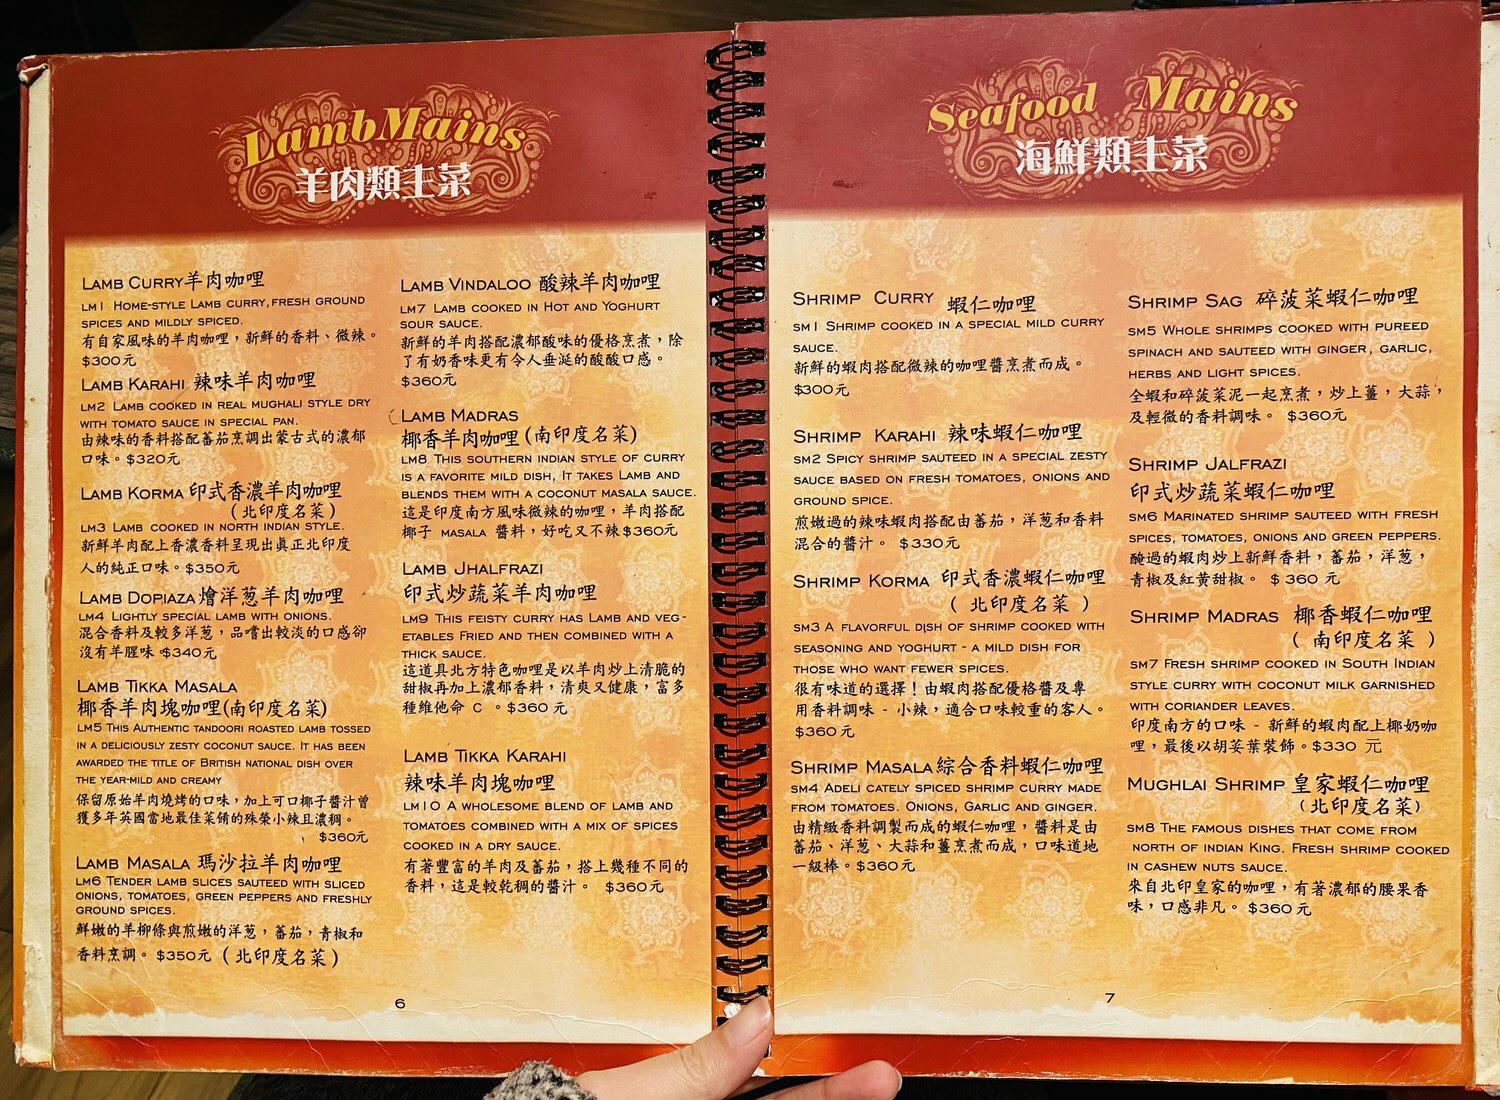 Lamb Mains
羊肉類主菜
LAMB CURRY羊肉咖哩
LM1 HOME-STYLE LAMB CURRY, FRESH GROUND
SPICES AND MILDLY SPICED.
有自家風味的羊肉咖哩，新鮮的香料、微辣。
$300元
LAMB KARAHI 辣味羊肉咖哩
LM2 LAMB COOKED IN REAL MUGHALI STYLE DRY
WITH TOMATO SAUCE IN SPECIAL PAN.
由辣味的香料搭配蕃茄烹調出蒙古式的濃郁
口味。$320元
LAMB KORMA 印式香濃羊肉咖哩
(北印度名菜)
LM3 LAMB COOKED IN NORTH INDIAN STYLE.
新鮮羊肉配上香濃香料呈現出真正北印度
人的純正口味。$350元
LAMB DOPIAZA 燴洋葱羊肉咖哩
LM4 LIGHTLY SPECIAL LAMB WITH ONIONS.
混合香料及較多洋葱，品嚐出較淡的口感卻
沒有羊腥味 $340元
LAMB TIKKA MASALA
椰香羊肉塊咖哩(南印度名菜)
LM5 THIS AUTHENTIC TANDOORI ROASTED LAMB TOSSED
IN A DELICIOUSLY ZESTY COCONUT SAUCE. IT HAS BEEN
AWARDED THE TITLE OF BRITISH NATIONAL DISH OVER
THE YEAR-MILD AND CREAMY
保留原始羊肉燒烤的口味，加上可口椰子醬汁曾
獲多年英國當地最佳菜餚的殊榮小辣且濃稠。
$360元
LAMB MASALA 瑪沙拉羊肉咖哩
LM6 TENDER LAMB SLICES SAUTEED WITH SLICED
ONIONS, TOMATOES, GREEN PEPPERS AND FRESHLY
GROUND SPICES.
鮮嫩的羊柳條與煎嫩的洋葱，蕃茄，青椒和
香料烹調。$350元 (北印度名菜)
LAMB VINDALOO 酸辣羊肉咖哩
LM7 LAMB COOKED IN HOT AND YOGHURT
SOUR SAUCE.
新鮮的羊肉搭配濃郁酸味的優格烹煮，除
了有奶香味更有令人垂涎的酸酸口感。
$360元
LAMB MADRAS
椰香羊肉咖哩(南印度名菜)
LM8 THIS SOUTHERN INDIAN STYLE OF CURRY
IS A FAVORITE MILD DISH, IT TAKES LAMB AND
BLENDS THEM WITH A COCONUT MASALA SAUCE.
這是印度南方風味微辣的咖哩，羊肉搭配
椰子 MASALA 醬料，好吃又不辣$360元
LAMB JHALFRAZI
印式炒蔬菜羊肉咖哩
LM9 THIS FEISTY CURRY HAS LAMB AND VEG-
ETABLES FRIED AND THEN COMBINED WITH A
THICK SAUCE.
這道具北方特色咖哩是以羊肉炒上清脆的
甜椒再加上濃郁香料，清爽又健康，富多
種維他命 C 。$360元
LAMB TIKKA KARAHI
辣味羊肉塊咖哩
LM10 A WHOLESOME BLEND OF LAMB AND
TOMATOES COMBINED WITH A MIX OF SPICES
COOKED IN A DRY SAUCE.
有著豐富的羊肉及蕃茄，搭上幾種不同的
香料，這是較乾稠的醬汁。 $360元
6
Seafood Mains
海鮮類主菜
SHRIMP CURRY 蝦仁咖哩
SM1 SHRIMP COOKED IN A SPECIAL MILD CURRY
SAUCE.
新鮮的蝦肉搭配微辣的咖哩醬烹煮而成。
$300元
SHRIMP KARAHI 辣味蝦仁咖哩
SM2 SPICY SHRIMP SAUTEED IN A SPECIAL ZESTY
SAUCE BASED ON FRESH TOMATOES, ONIONS AND
GROUND SPICE.
煎嫩過的辣味蝦肉搭配由蕃茄，洋葱和香料
混合的醬汁。 $330元
SHRIMP KORMA 印式香濃蝦仁咖哩
( 北印度名菜 )
SM3 A FLAVORFUL DISH OF SHRIMP COOKED WITH
SEASONING AND YOGHURT - A MILD DISH FOR
THOSE WHO WANT FEWER SPICES.
很有味道的選擇！由蝦肉搭配優格醬及專
用香料調味 - 小辣，適合口味較重的客人。
$360元
SHRIMP MASALA 綜合香料蝦仁咖哩
SM4 ADELI CATELY SPICED SHRIMP CURRY MADE
FROM TOMATOES. ONIONS, GARLIC AND GINGER.
由精緻香料調製而成的蝦仁咖哩，醬料是由
蕃茄、洋葱、大蒜和薑烹煮而成，口味道地
一級棒。$360元
SHRIMP SAG 碎菠菜蝦仁咖哩
SM5 WHOLE SHRIMPS COOKED WITH PUREED
SPINACH AND SAUTEED WITH GINGER, GARLIC,
HERBS AND LIGHT SPICES.
全蝦和碎菠菜泥一起烹煮，炒上薑，大蒜，
及輕微的香料調味。 $360元
SHRIMP JALFRAZI
印式炒蔬菜蝦仁咖哩
SM6 MARINATED SHRIMP SAUTEED WITH FRESH
SPICES, TOMATOES, ONIONS AND GREEN PEPPERS.
醃過的蝦肉炒上新鮮香料，蕃茄，洋葱，
青椒及紅黃甜椒。 $ 360 元
SHRIMP MADRAS 椰香蝦仁咖哩
( 南印度名菜 )
SM7 FRESH SHRIMP COOKED IN SOUTH INDIAN
STYLE CURRY WITH COCONUT MILK GARNISHED
WITH CORIANDER LEAVES.
印度南方的口味 - 新鮮的蝦肉配上椰奶咖
哩，最後以胡荽葉裝飾。$330 元
MUGHLAI SHRIMP 皇家蝦仁咖哩
(北印度名菜)
SM8 THE FAMOUS DISHES THAT COME FROM
NORTH OF INDIAN KING. FRESH SHRIMP COOKED
IN CASHEW NUTS SAUCE.
來自北印皇家的咖哩，有著濃郁的腰果香
味，口感非凡。$360元
7